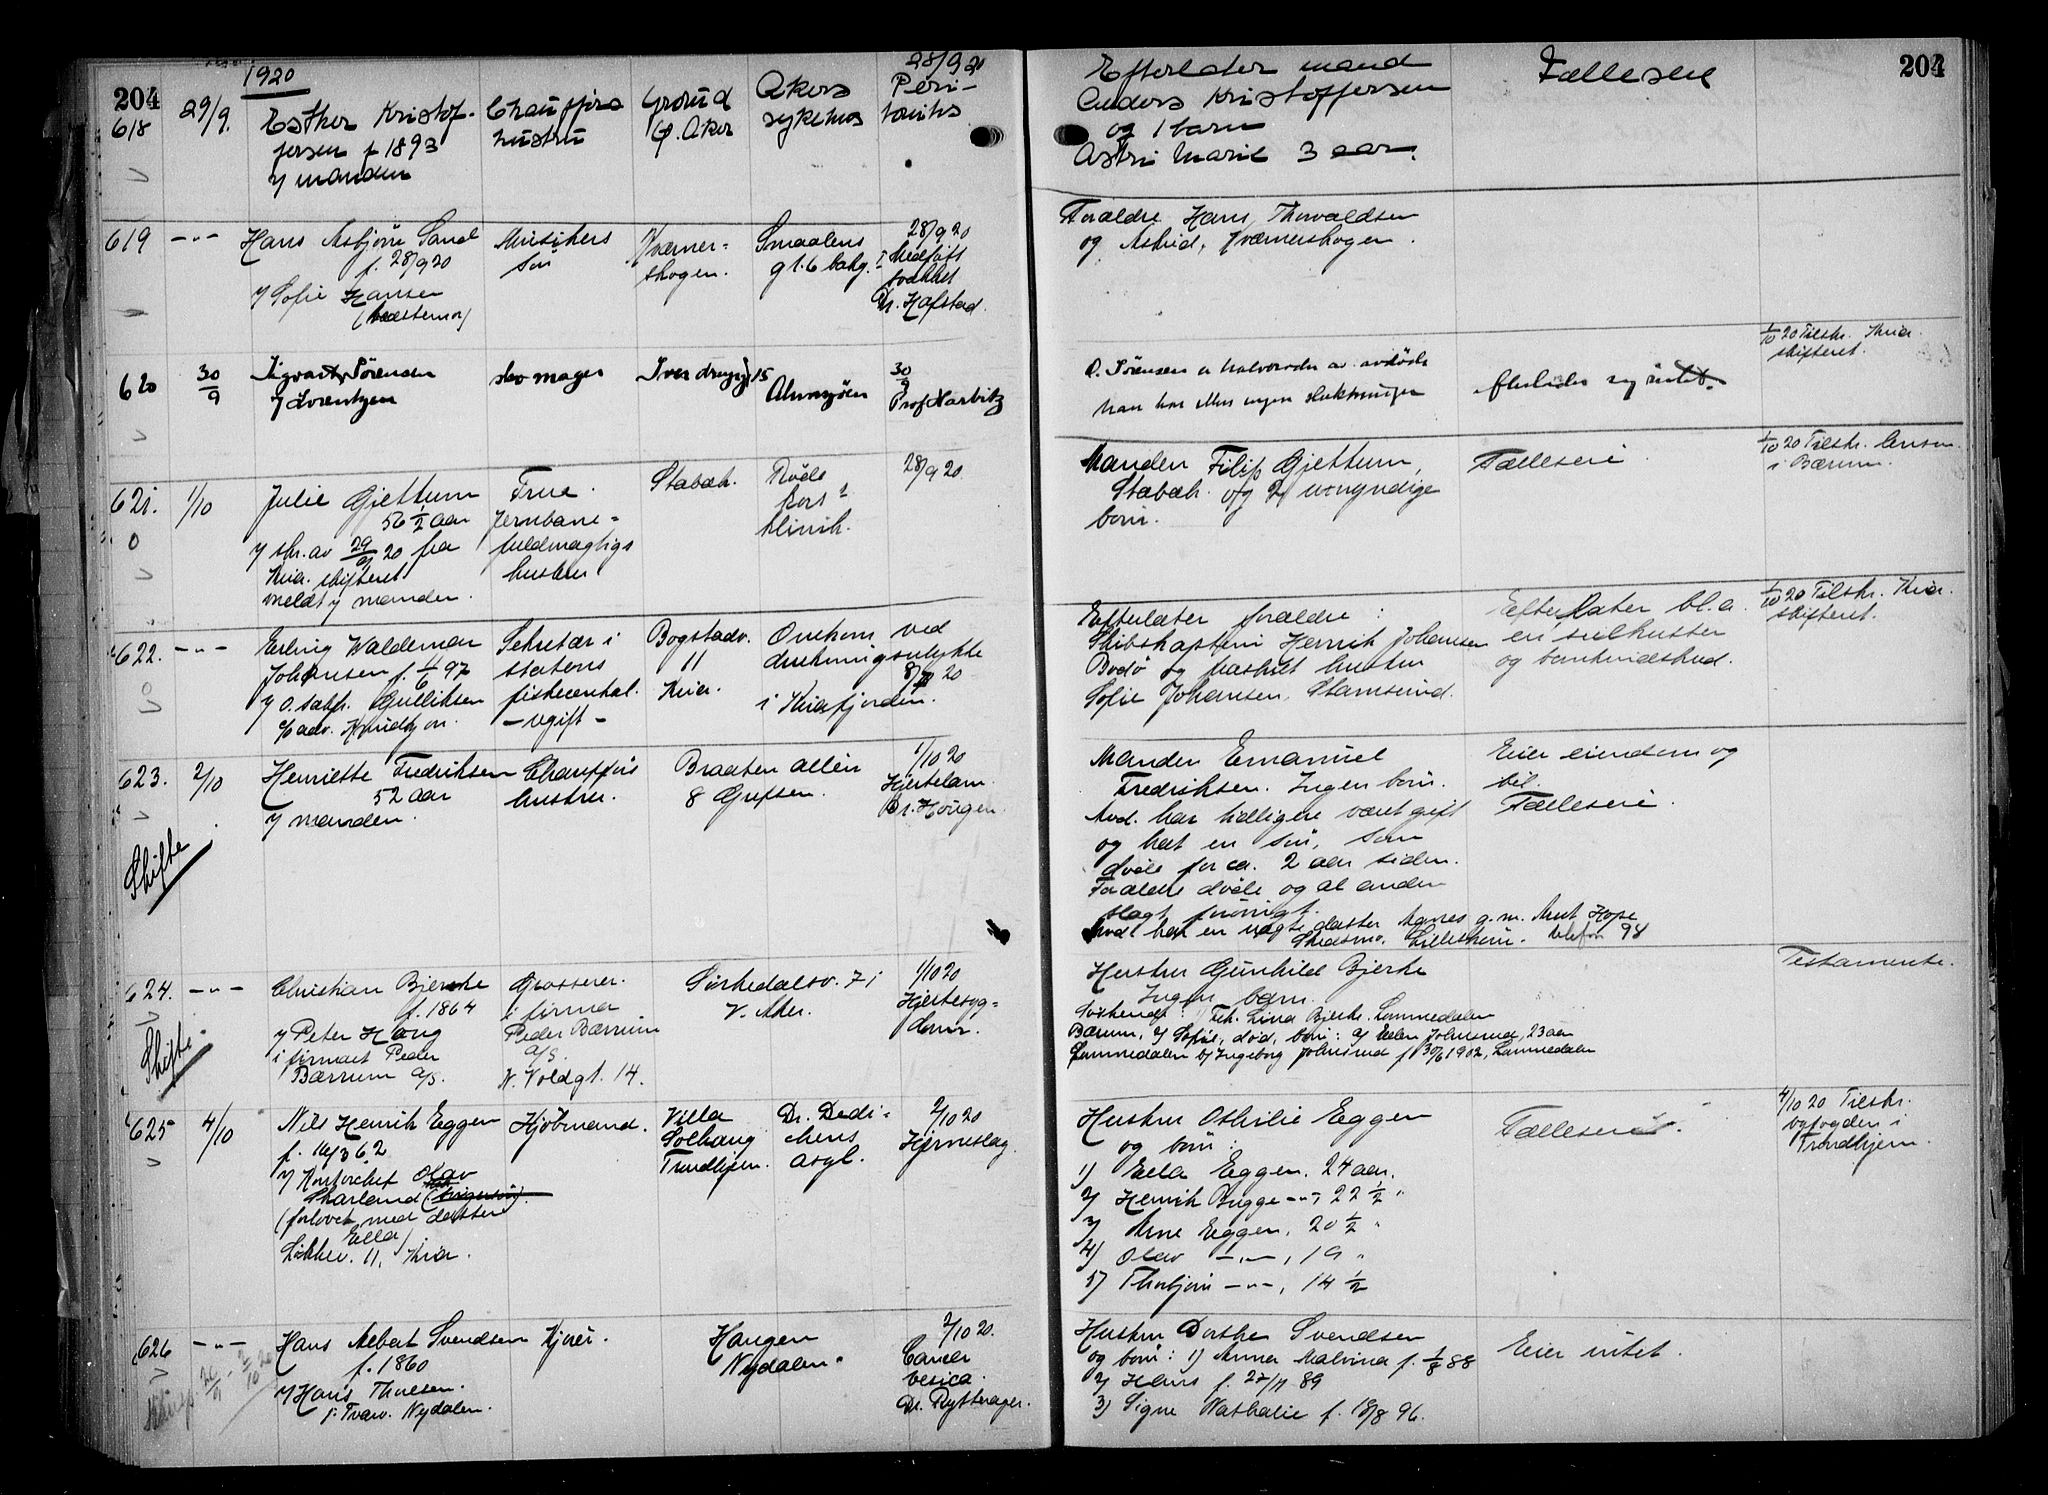 204
1920
28/9 20
204
618
29/9.
Esther Kristof-
fersen f 1893
v/ manden
Chaufførs
hustru
Grorud
Ø. Aker
Akers
sykehus
Peri-
tonitis
Efterlater mand
Anders Kristoffersen
og 1 barn
Astri Marie 3 aar.
Fælleseie
619
—"—
Hans Asbjørn Sand
f. 28/9 20
v/ Sofie Hansen
(bestemor)
Musikers
søn
Kværner-
skogen.
Smaalens
gt. 6 bakg.
28/9 20
Medfødt
svakhet
Dr. Hafstad.
Forældre Hans Thorvaldsen
og Astrid, Kværnerskogen.
620
30/9
Sørensen
v/ Lorentzen
skomager
15
30/9
Prof Harbitz
O. Sørensen er halvbroder av avdøde
han har ellers ingen slektninger
1/10 20 Tilskr. Kria.
skifteret.
621.
1/10
Julie Gjettum
56 1/2 aar
v/ skr. av 29/9 20 fra
Kria. skifteret
meldt v/ manden.
Frue.
Jernbane-
fuldmægtigs
hustru
Stabæk.
Røde
kors
klinik.
28/9 20
Manden Filip Gjettum,
Stabæk. og 2 umyndige
børn.
Fælleseie.
1/10 20 Tilskr. lensm.
i Bærum.
622.
—"—
Erling Waldemar
Johansen f. 1/6 97
v/ o.r.sakf. Gulliksen
c/o adv. Knudtzon.
Sekretær i
statens
fiskecentral.
— ugift —
Bogstadv.
11
Kria.
Omkom ved
drukningsulykke
8/8 20
i Kriafjorden.
Efterlater forældre:
Skibskaptein Henrik Johansen
Bodø og fraskilt hustru
Sofie Johansen, Stamsund.
Efterlater bl.a.
en seilkutter
og bankindskud.
1/10 20 Tilskr. Kria.
skifteret.
623.
2/10
Skifte
Henriette Fredriksen
52 aar
v/ manden.
Chaufførs
hustru.
Braaten alleen
8 Grefsen.
1/10 20
Hjertelam.
Dr. Hougen.
Manden Emanuel
Fredriksen. Ingen børn.
Avd. har tidligere været gift
og hat en søn, som
døde for ca. 2 aar siden.
Forældre døde og al anden
slegt
Avd. har en datter Agnes g.m. Knut Hope
Skedsmo. Lillestrøm. telefon 98
Eier eiendom og
bil.
Fælleseie.
624.
—"—
Skifte
Christian Bjerke
f. 1864
v/ Peter Haug
i firmaet Peder
Bærrum a/s.
Grosserer.
i firma
Peder Bærrum
a/s.
N. Voldgt. 14.
Sørkedalsv. 71
V. Aker.
1/10 20
Hjertesyg-
dom.
Hustru Gunhild Bjerke
Ingen barn.
Søskende: Frk. Lina Bjerke. Lommedalen
Bærum, 2/ Sofie, død, børn: a/ Ellen Johnsrud, 23 aar
Lommedalen b/ Ingeborg Johnsrud f 30/6 1902, Lommedalen
Testamente.
625
4/10
Nils Henrik Eggen
f. 16/3 62
v/ Kontorchef Olav
Skarland
(forlovet med datteren
Ella)
Løkkev. 11, Kria.
Kjøbmand.
Villa
Solhaug
Trondhjem.
Dr. Dedi-
chens
asyl.
2/10 20
Hjerneslag.
Hustru Othilie Eggen
og børn:
1) Ella Eggen. 24 aar.
2) Henrik Bugge —"—, 22 1/2 "
3) Arne Eggen, 20 1/2 "
4) Olav —"—, 19 "
5) Thorbjørn —"—, 14 1/2
Fælleseie.
4/10 20 Tilskr.
byfogden i
Trondhjem.
626
—"—
Hans Albert Svendsen
f. 1860
v/ Hans Thuesen.
Nydalen.
Kjører.
Haugen
Nydalen.
2/10 20.
Cancer
vesica.
Dr. Rytterager.
Hustru Dorthe Svendsen
og børn: 1) Anna Malvina f. 1/8 88
2) Hans f. 27/11 89
3) Signe Nathalie f. 18/8 96.
Eier intet.